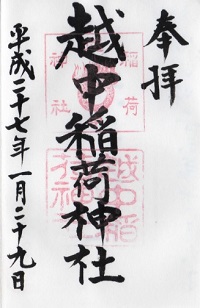 奉拝
越中稲荷神社
平成二十七年一月二十九日
稲荷
神社
越中稲